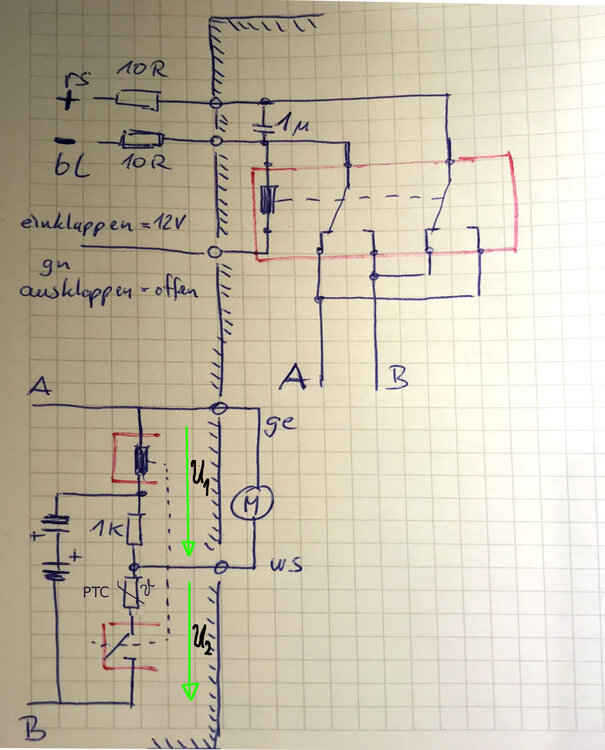 10R
rs
+
1µ
-
10R
bL
einklappen = 12V
gn
ausklappen = offen
A
B
A
ge
U1
M
1K
+
+
ws
PTC
ϑ
U2
B